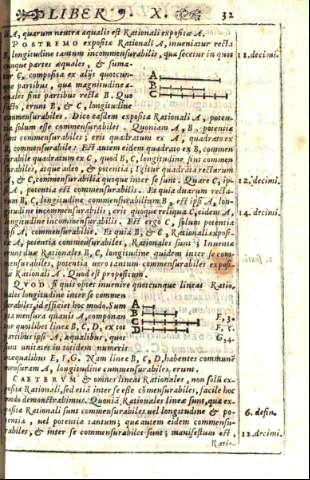 LIBER X. 32
A, quarum neutra aequalis est Rationali expositae A.
POSTREMO exposita Rationali A, inueniatur recta
B, longitudine tantum incommensurabilis, quae secetur in quot
cunque partes aequales, & suma-
tur C, composita ex alijs quotcun-
que partibus, quae magnitudine ae-
quales sint partibus recta B. Quo
facto, erunt B, & C, longitudine
commensurabiles. Dico easdem exposita Rationali A, poten-
tia solum esse commensurabiles. Quoniam A, B, potentia
sunt commensurabiles; erit quadratum ex A, quadrato ex
B, commensurabile. Est autem eidem quadrato ex B, commen
surabile quadratum ex C, quod B, C, longitudine sint commen
surabiles, atque adeo, & potentia; Igitur quadrata rectarum
A, & C, commensurabilia quoque inter se sunt. Quare C, ip-
A, potentia est commensurabilis. Et quia duarum recta-
rum B, C, longitudine commensurabilium B, est ipsi A, lon-
gitudine incommensurabilis, erit quoque reliqua C, eidem A,
longitudine incommensurabilis. Est ergo C, solum potentia
ipsi A, commensurabilis. Et quia B, & C, Rationali exposi-
tae A, potentia commensurabiles, Rationales sunt; Inuenta
erunt duae Rationales B, C, longitudine quidem inter se com-
mensurabiles, potentia vero tantum commensurabiles exposi-
tae Rationali A. Quod est propositum.
QUOD si quis optet inuenire quotcunque lineas Ratio-
nales longitudine inter se commen
surabiles, id efficiet hoc modo. Sum
pta mensura quauis A, componan
tur quotlibet lineae B, C, D, ex tot
partibus ipsi A, aequalibus, quot
sunt unitates in totidem numeris
inaequalibus E, F, G. Nam lineae B, C, D, habentes communem
mensuram A, longitudine commensurabiles, erunt.
CAETERVM & omnes lineas Rationales, non solum ex-
positae Rationali, sed etiam inter se esse commensurabiles, facile hoc
modo demonstrabimus. Quoniam Rationales lineae sunt, quae ex-
positae Rationali sunt commensurabiles uel longitudine & po-
tentia, uel potentia tantum; quae autem eidem commensu-
rabiles, & inter se commensurabiles sunt; manifestum est,
Ratio-
11. decimi.
12. decimi.
14. decimi.
6. defin.
12. decimi.
A
B
C
A
B
C
D